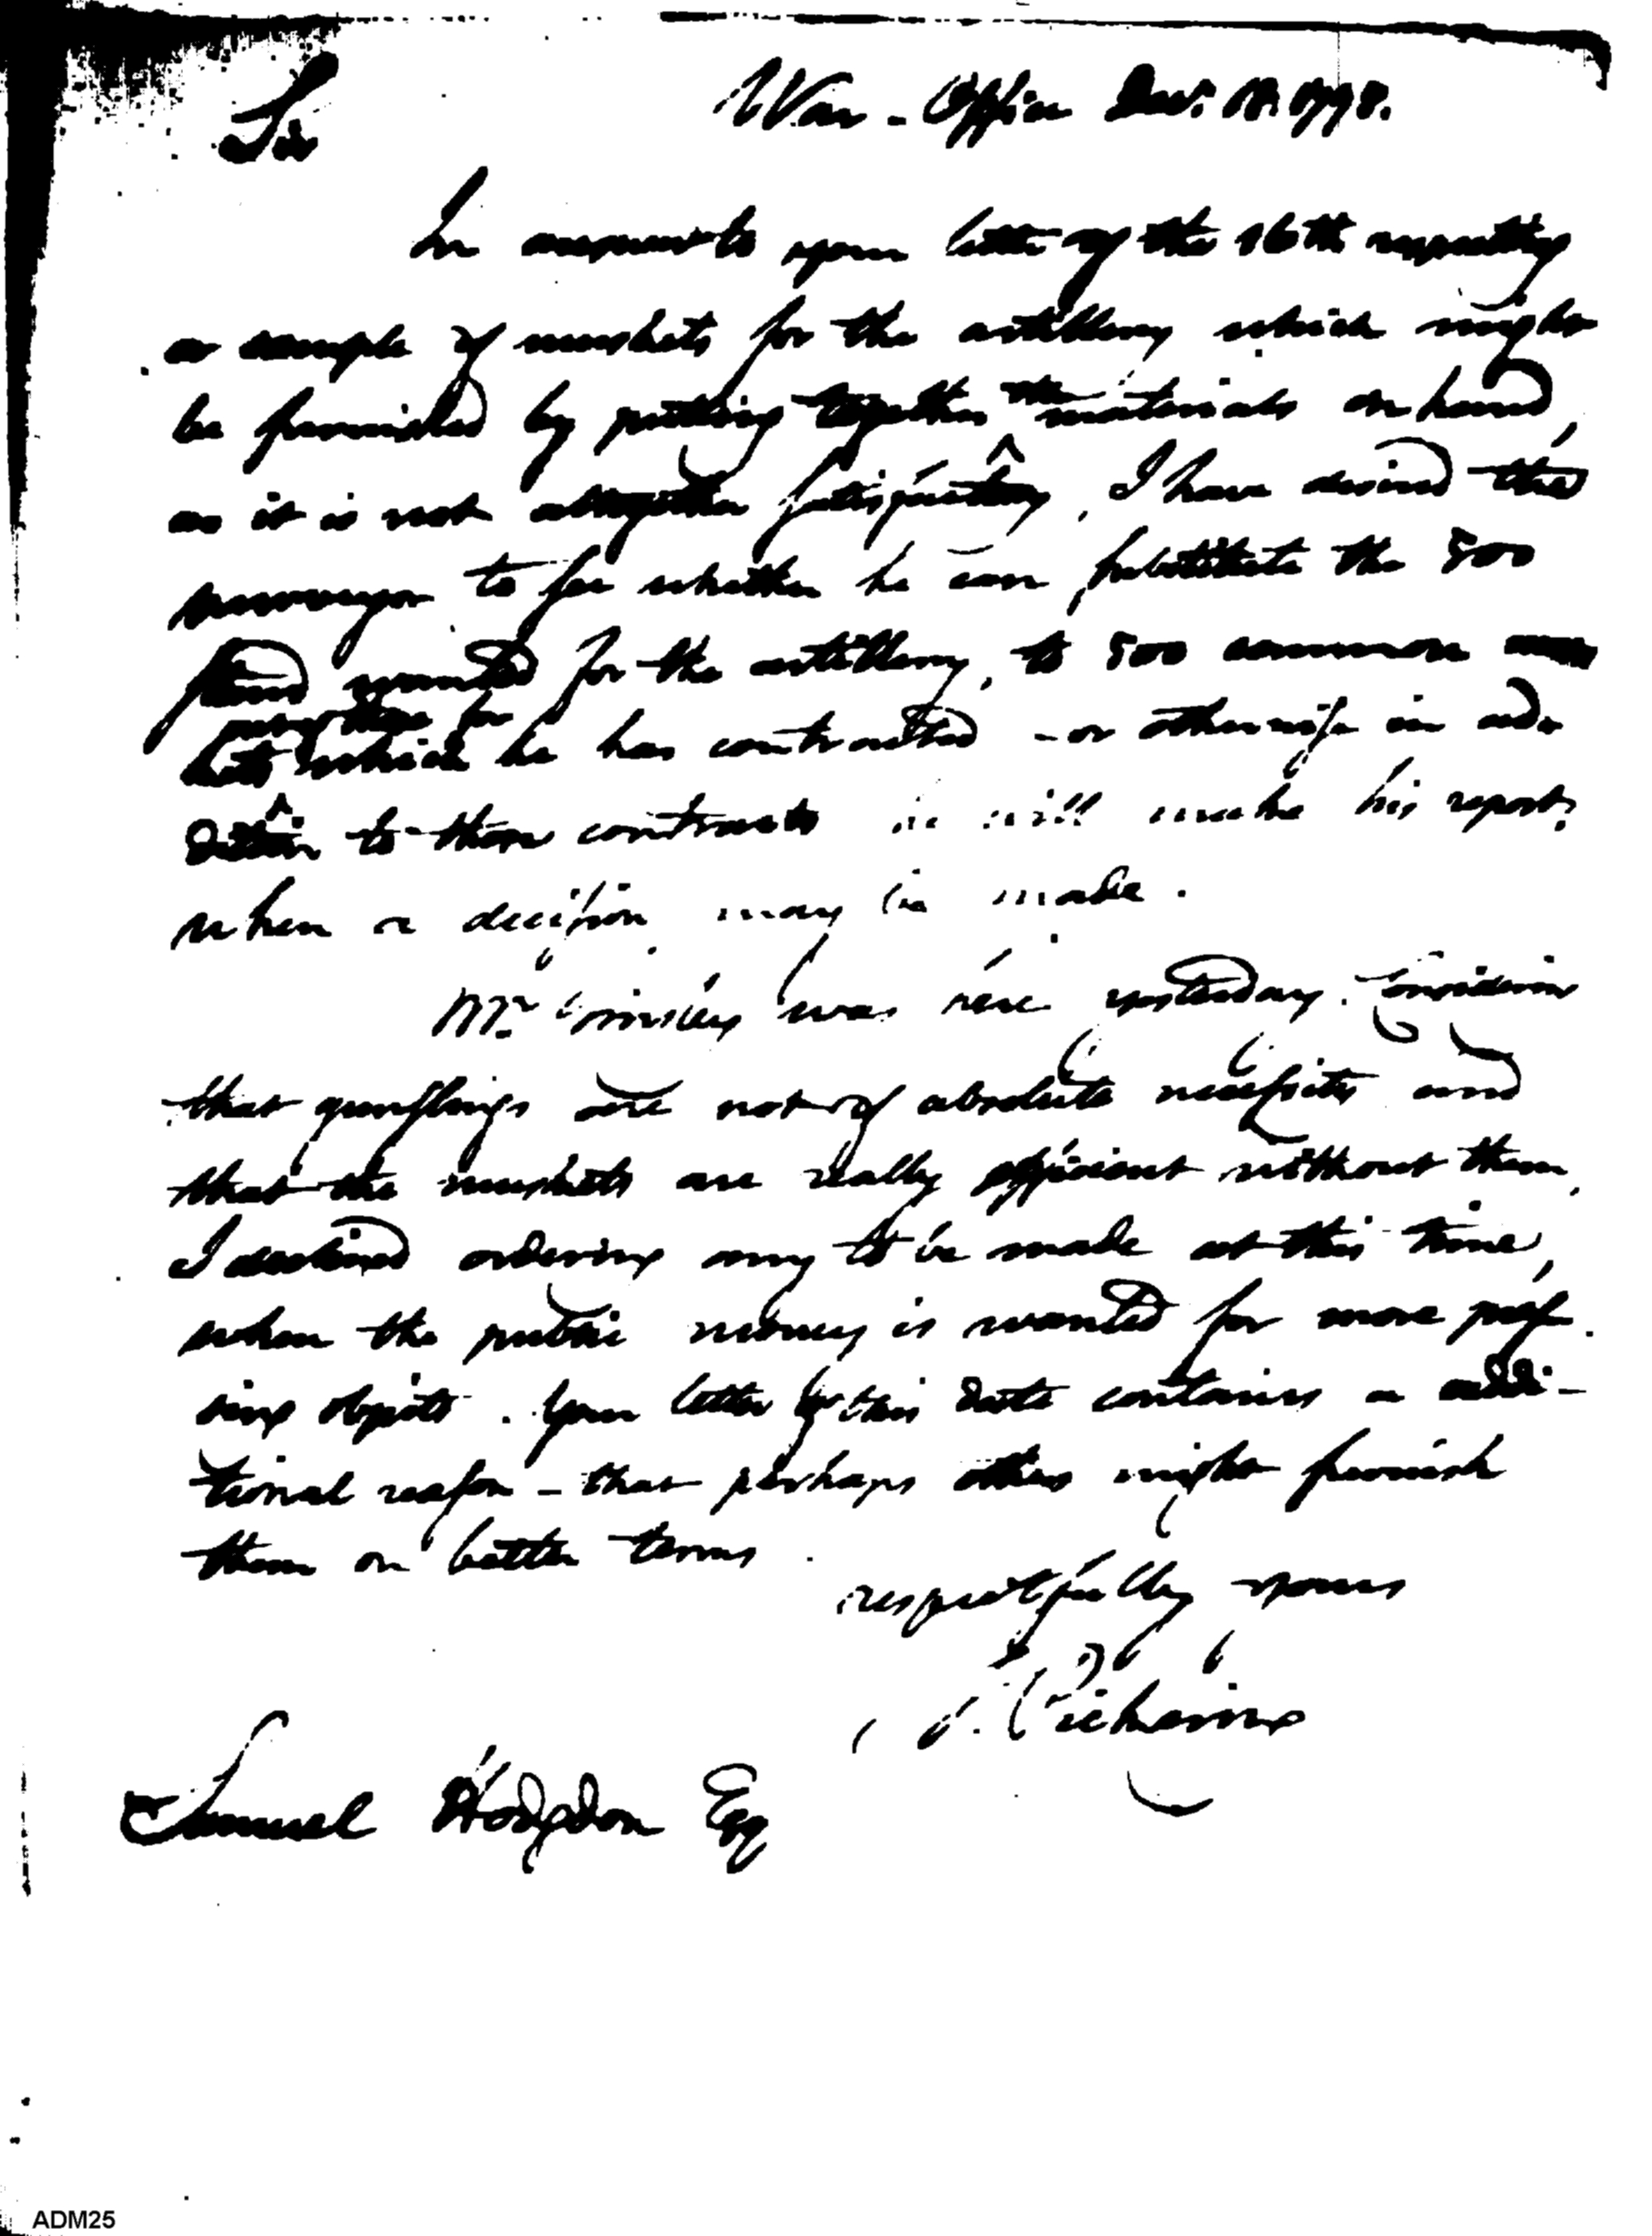 War-Office Decr. 1795.
Sir
In answer to your letter of the 16th respecting
a sample of muskets for the artillery which might
be furnished by putting together the materials on hand,
as it is not altogether satisfactory, I have desired the
messenger to see whether he can substitute the 500
wanted for the artillery, to 500 common
which he has contracted - or otherwise in ad-
dition to those contracts he will make his report,
when a decision may be made.
Mr. was here yesterday. Conceiving
that gunslings are not of absolute necessity and
that the muskets are really efficient without them,
I declined ordering any to be made at this time,
when the public money is wanted for more press-
ing objects. Your letter of this date contains an addi-
tional reason - that perhaps others might furnish
them on better terms.
respectfully yours
T. Pickering
Samuel Hodgdon Esq
ADM25